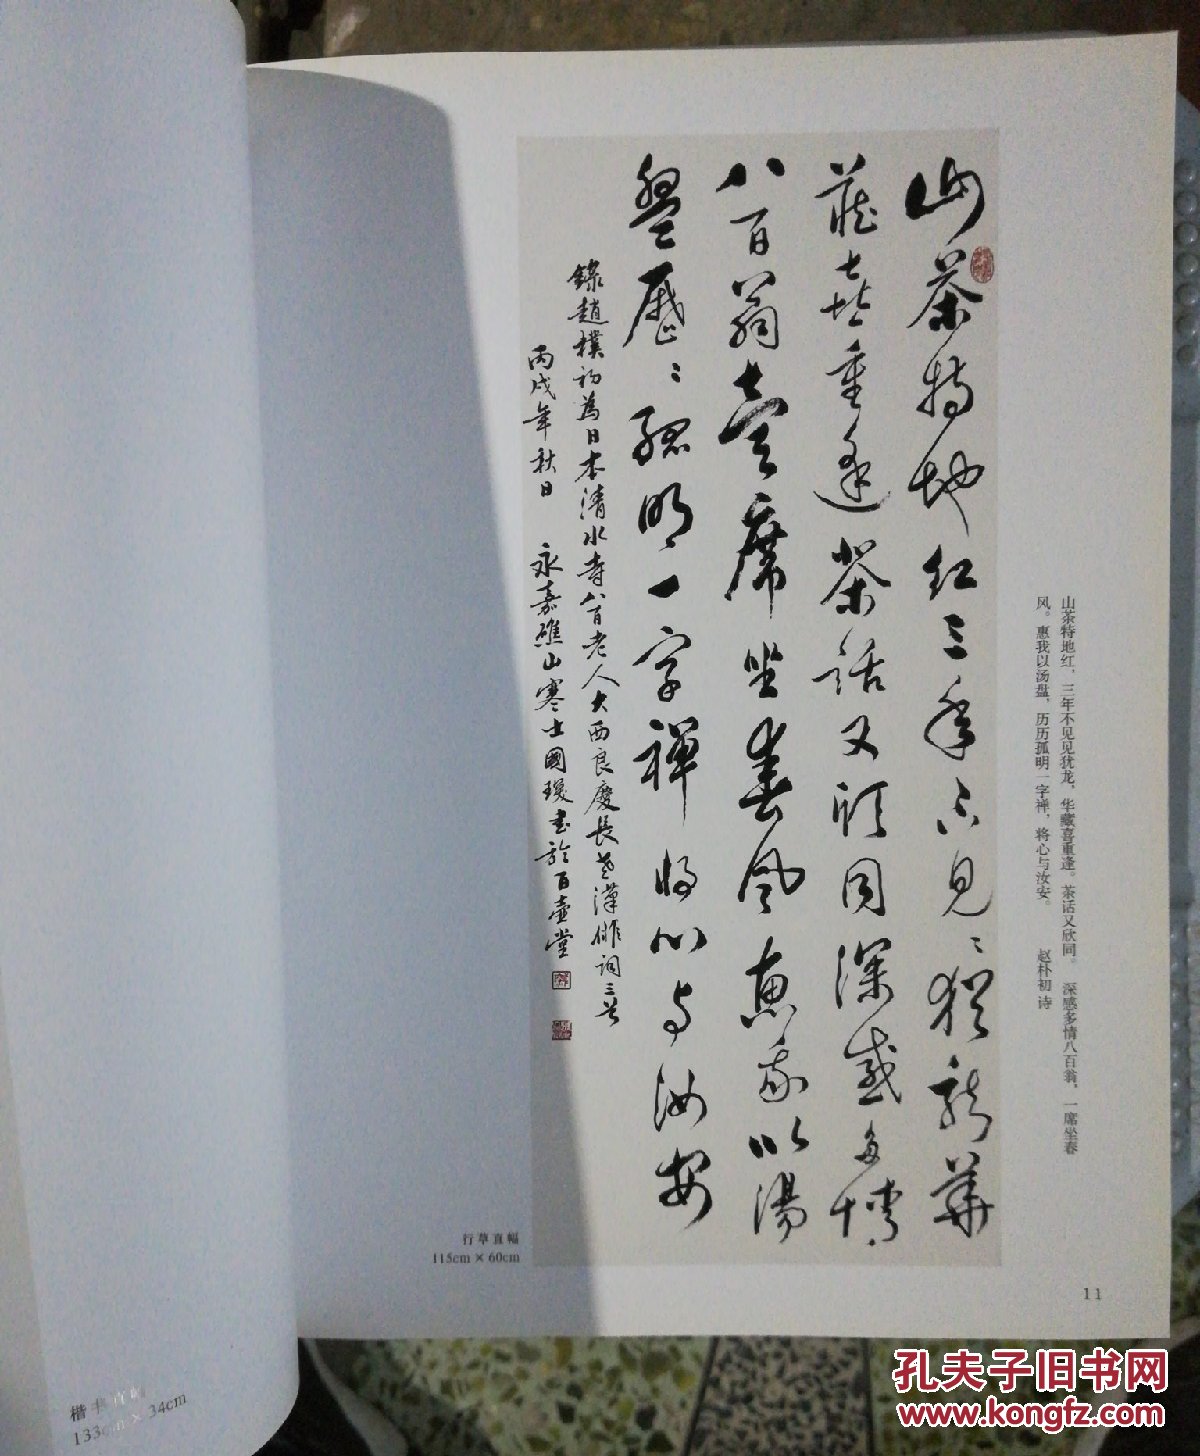 山茶特地红，三年不见见犹龙，华藏喜重逢。茶话又欣同。 深感多情八百翁，一席坐春
风。惠我以汤盘，历历孤明一字禅，将心与汝安。 赵朴初 诗
山茶特地红三年不见〻犹龙華
藏喜重逢茶話又欣同深感多情
八百翁壹席坐春风惠我以湯
盤歷〻孤明一字禪將心与汝安
錄趙樸初為日本清水寺八百老人大西良慶長老漢俳詞三首
丙戌年秋日 永嘉礁山寒士國琝書於百壺堂
行草直幅
115cm × 60cm
11
楷书直幅
133cm × 34cm
孔夫子旧书网
www.kongfz.com